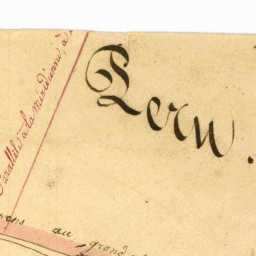 Pern.
Parallèle à la méridienne, à
au grand